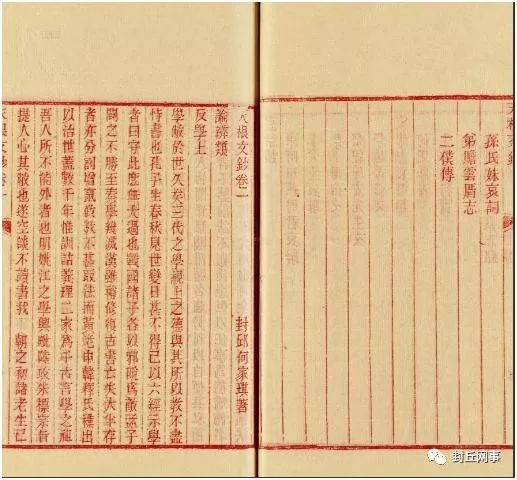 天根文鈔
孫氏姝哀詞
弟贈雲厝志
二僕傳
天根文鈔卷一
封邱何家琪著
論辯類
反學上
學敝於世久矣三代之學視上之德與其所以教不盡
恃書也孔子生春秋尾世變日甚不得已以六經示學
者曰守此應無大過也戰國諸子各以邪說為敵孟子
闢之不勝至秦學幾滅漢雖補修得古書亡失大半存
者亦分詞教不甚取法而黃老申韓釋氏種出
以治世蓋數千年惟訓詁義理二家為千古言學之
吾人所不能外者也明姚江之學興毗陸攻朱標宗旨
提人心其敝也遂空談不讀書我 朝之初諸老生已
天根文鈔卷一
封丘网事